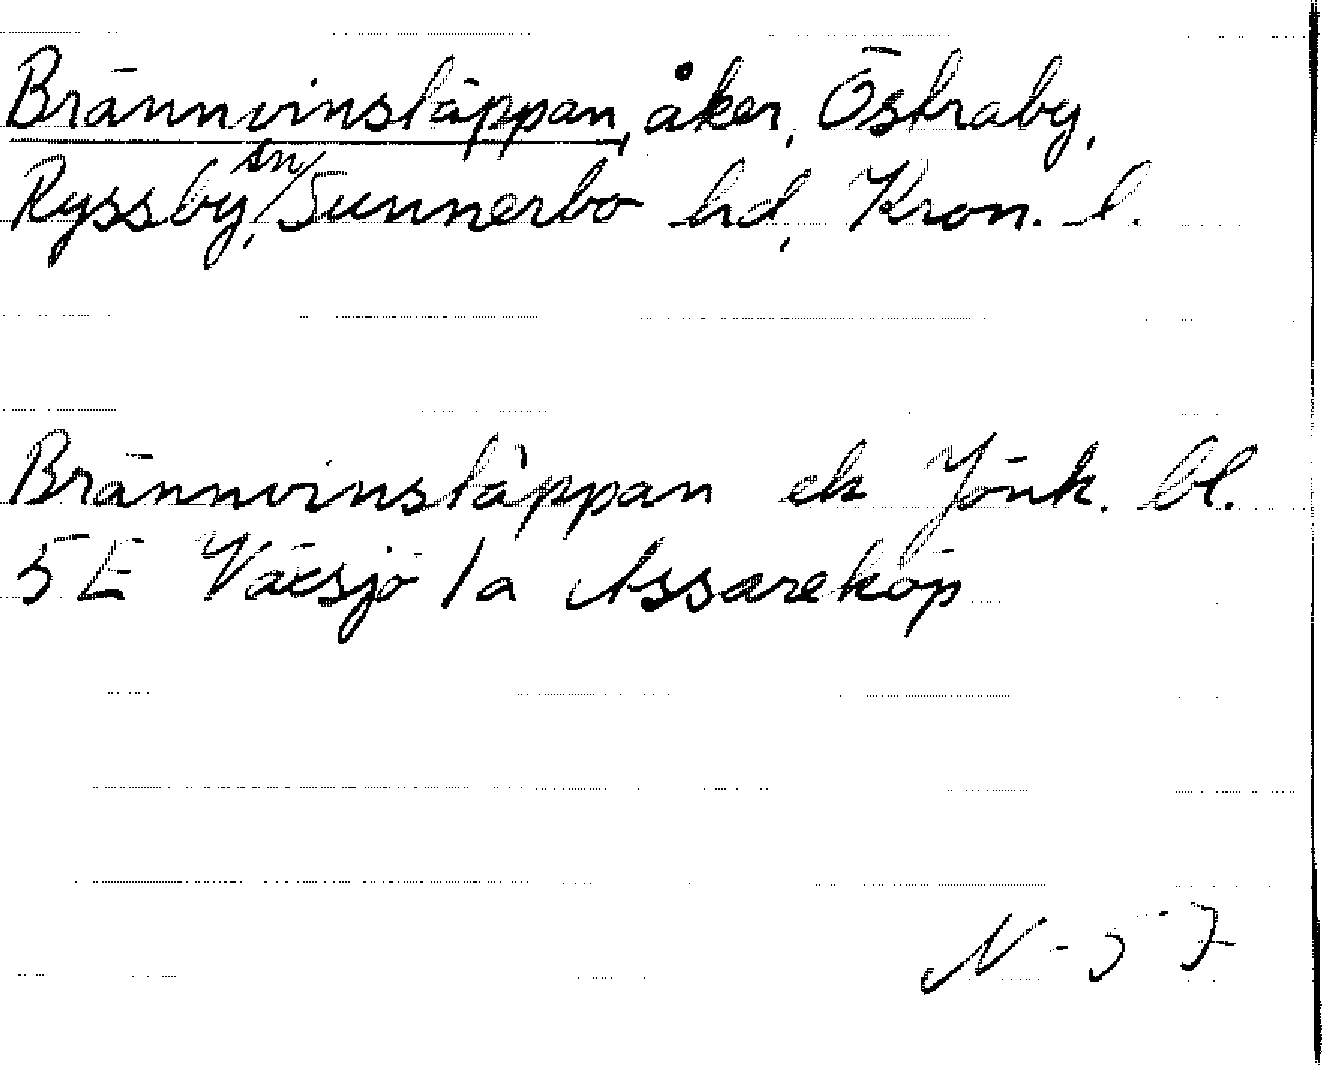 Brännvinsläppan, åker, Östraby,
Ryssby sn, Sunnerbo hd, Kron. l.
Brännvinsläppan ek Jönk. bl.
5E Växsjö 1a Assareköp
N-57